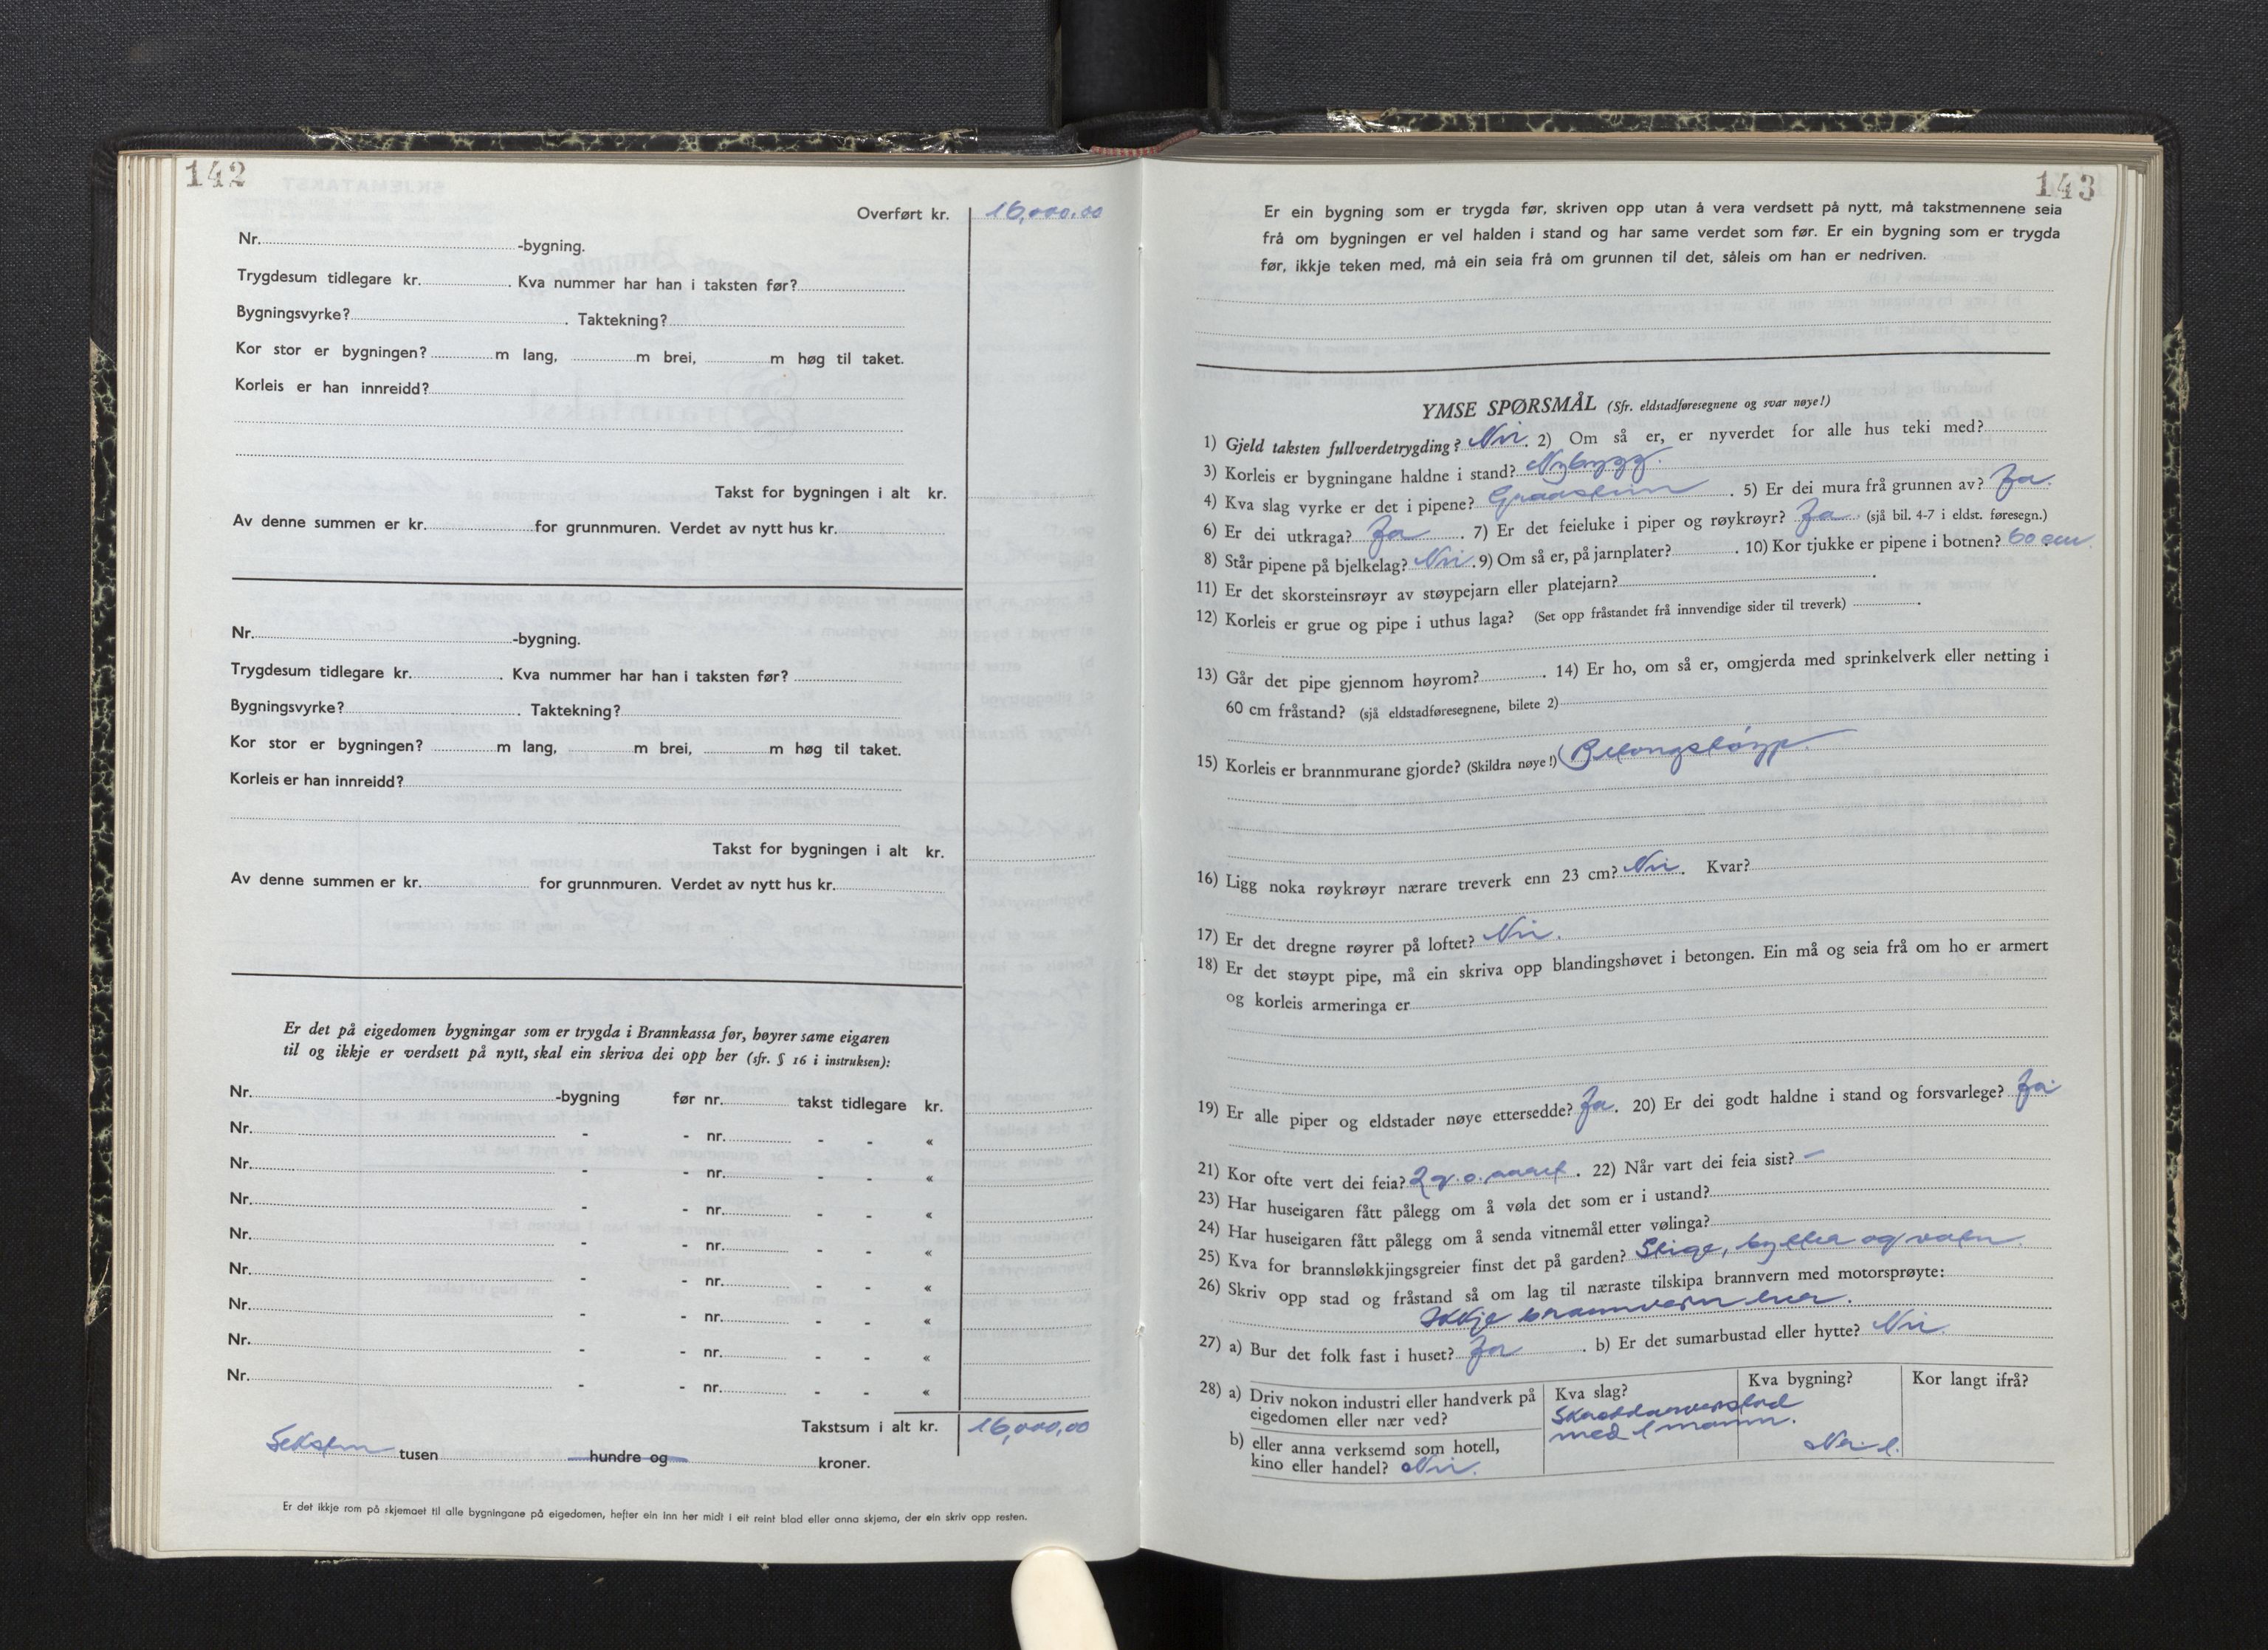 142
Overført kr. 16,000.00
Nr. -bygning.
Trygdesum tidlegare kr. . Kva nummer har han i taksten før?
Bygningsvyrke? . Taktekning?
Kor stor er bygningen? m lang, m brei, m høg til taket.
Korleis er han innreidd?
Takst for bygningen i alt kr.
Av denne summen er kr. for grunnmuren. Verdet av nytt hus kr.
Nr. -bygning.
Trygdesum tidlegare kr. . Kva nummer har han i taksten før?
Bygningsvyrke? . Taktekning?
Kor stor er bygningen? m lang, m brei, m høg til taket.
Korleis er han innreidd?
Takst for bygningen i alt kr.
Av denne summen er kr. for grunnmuren. Verdet av nytt hus kr.
Er det på eigedomen bygningar som er trygda i Brannkassa før, høyrer same eigaren
til og ikkje er verdsett på nytt, skal ein skriva dei opp her (sfr. § 16 i instruksen):
Nr. -bygning før nr. takst tidlegare kr.
Nr. - - nr. - - «
Nr. - - nr. - - «
Nr. - - nr. - - «
Nr. - - nr. - - «
Nr. - - nr. - - «
Nr. - - nr. - - «
Nr. - - nr. - - «
Nr. - - nr. - - «
Takstsum i alt kr. 16,000,00
Seksten tusen hundre og kroner.
Er det ikkje rom på skjemaet til alle bygningane på eigedomen, hefter ein inn her midt i eit reint blad eller anna skjema, der ein skriv opp resten.
143
Er ein bygning som er trygda før, skriven opp utan å vera verdsett på nytt, må takstmennene seia
frå om bygningen er vel halden i stand og har same verdet som før. Er ein bygning som er trygda
før, ikkje teken med, må ein seia frå om grunnen til det, såleis om han er nedriven.
YMSE SPØRSMÅL (Sfr. eldstadføresegnene og svar nøye!)
1) Gjeld taksten fullverdetrygding? Nei. 2) Om så er, er nyverdet for alle hus teki med?
3) Korleis er bygningane haldne i stand? Nybygg.
4) Kva slag vyrke er det i pipene? Graastein . 5) Er dei mura frå grunnen av? Ja.
6) Er dei utkraga? Ja . 7) Er det feieluke i piper og røykrøyr? Ja (sjå bil. 4-7 i eldst. føresegn.)
8) Står pipene på bjelkelag? Nei. 9) Om så er, på jarnplater? . 10) Kor tjukke er pipene i botnen? 60 cm.
11) Er det skorsteinsrøyr av støypejarn eller platejarn? .
12) Korleis er grue og pipe i uthus laga? (Set opp fråstandet frå innvendige sider til treverk) .
13) Går det pipe gjennom høyrom? . 14) Er ho, om så er, omgjerda med sprinkelverk eller netting i
60 cm fråstand? (sjå eldstadføresegnene, bilete 2)
15) Korleis er brannmurane gjorde? (Skildra nøye!) Betongstøyp.
16) Ligg noka røykrøyr nærare treverk enn 23 cm? Nei. Kvar?
17) Er det dregne røyrer på loftet? Nei.
18) Er det støypt pipe, må ein skriva opp blandingshøvet i betongen. Ein må og seia frå om ho er armert
og korleis armeringa er
19) Er alle piper og eldstader nøye ettersedde? Ja. 20) Er dei godt haldne i stand og forsvarlege? Ja
21) Kor ofte vert dei feia? 2 g. o. aaret . 22) Når vart dei feia sist? -
23) Har huseigaren fått pålegg om å vøla det som er i ustand?
24) Har huseigaren fått pålegg om å senda vitnemål etter vølinga?
25) Kva for brannsløkkjingsgreier finst det på garden? Stige, bytter og vatn.
26) Skriv opp stad og fråstand så om lag til næraste tilskipa brannvern med motorsprøyte:
Ikkje brannvern her.
27) a) Bur det folk fast i huset? Ja . b) Er det sumarbustad eller hytte? Nei.
28) a) Driv nokon industri eller handverk på
eigedomen eller nær ved?
b) eller anna verksemd som hotell,
kino eller handel? Nei.
Kva slag?
med 1 mann.
Kva bygning?
Nr. 1.
Kor langt ifrå?